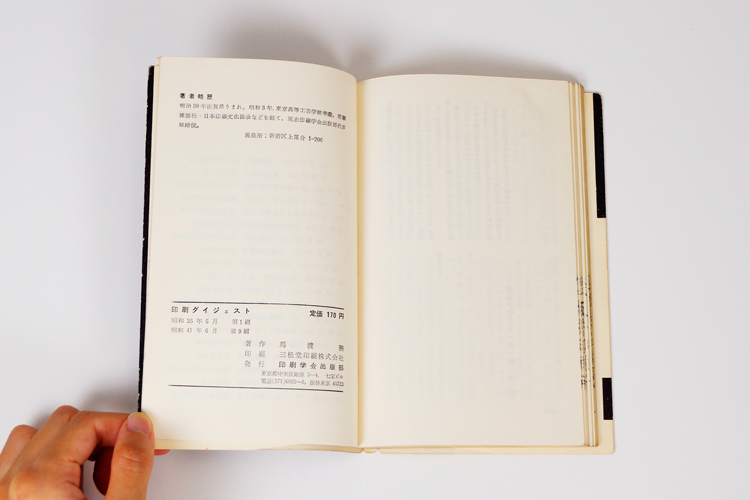 著者略歴
明治39年佐賀県うまれ。昭和3年、東京高等工芸学校卒業。
日本印刷文化協会などを経て、現在印刷学会出版部
取締役。
現住所：新宿区上落合 1-206
印刷ダイジェスト 定価 170 円
昭和 35 年 5 月 第1刷
昭和 41 年 6 月 第9刷
著作 馬渡 務
印刷 三松堂印刷株式会社
発行 印刷学会出版部
東京都中央区銀座 5—4, 七宝ビル